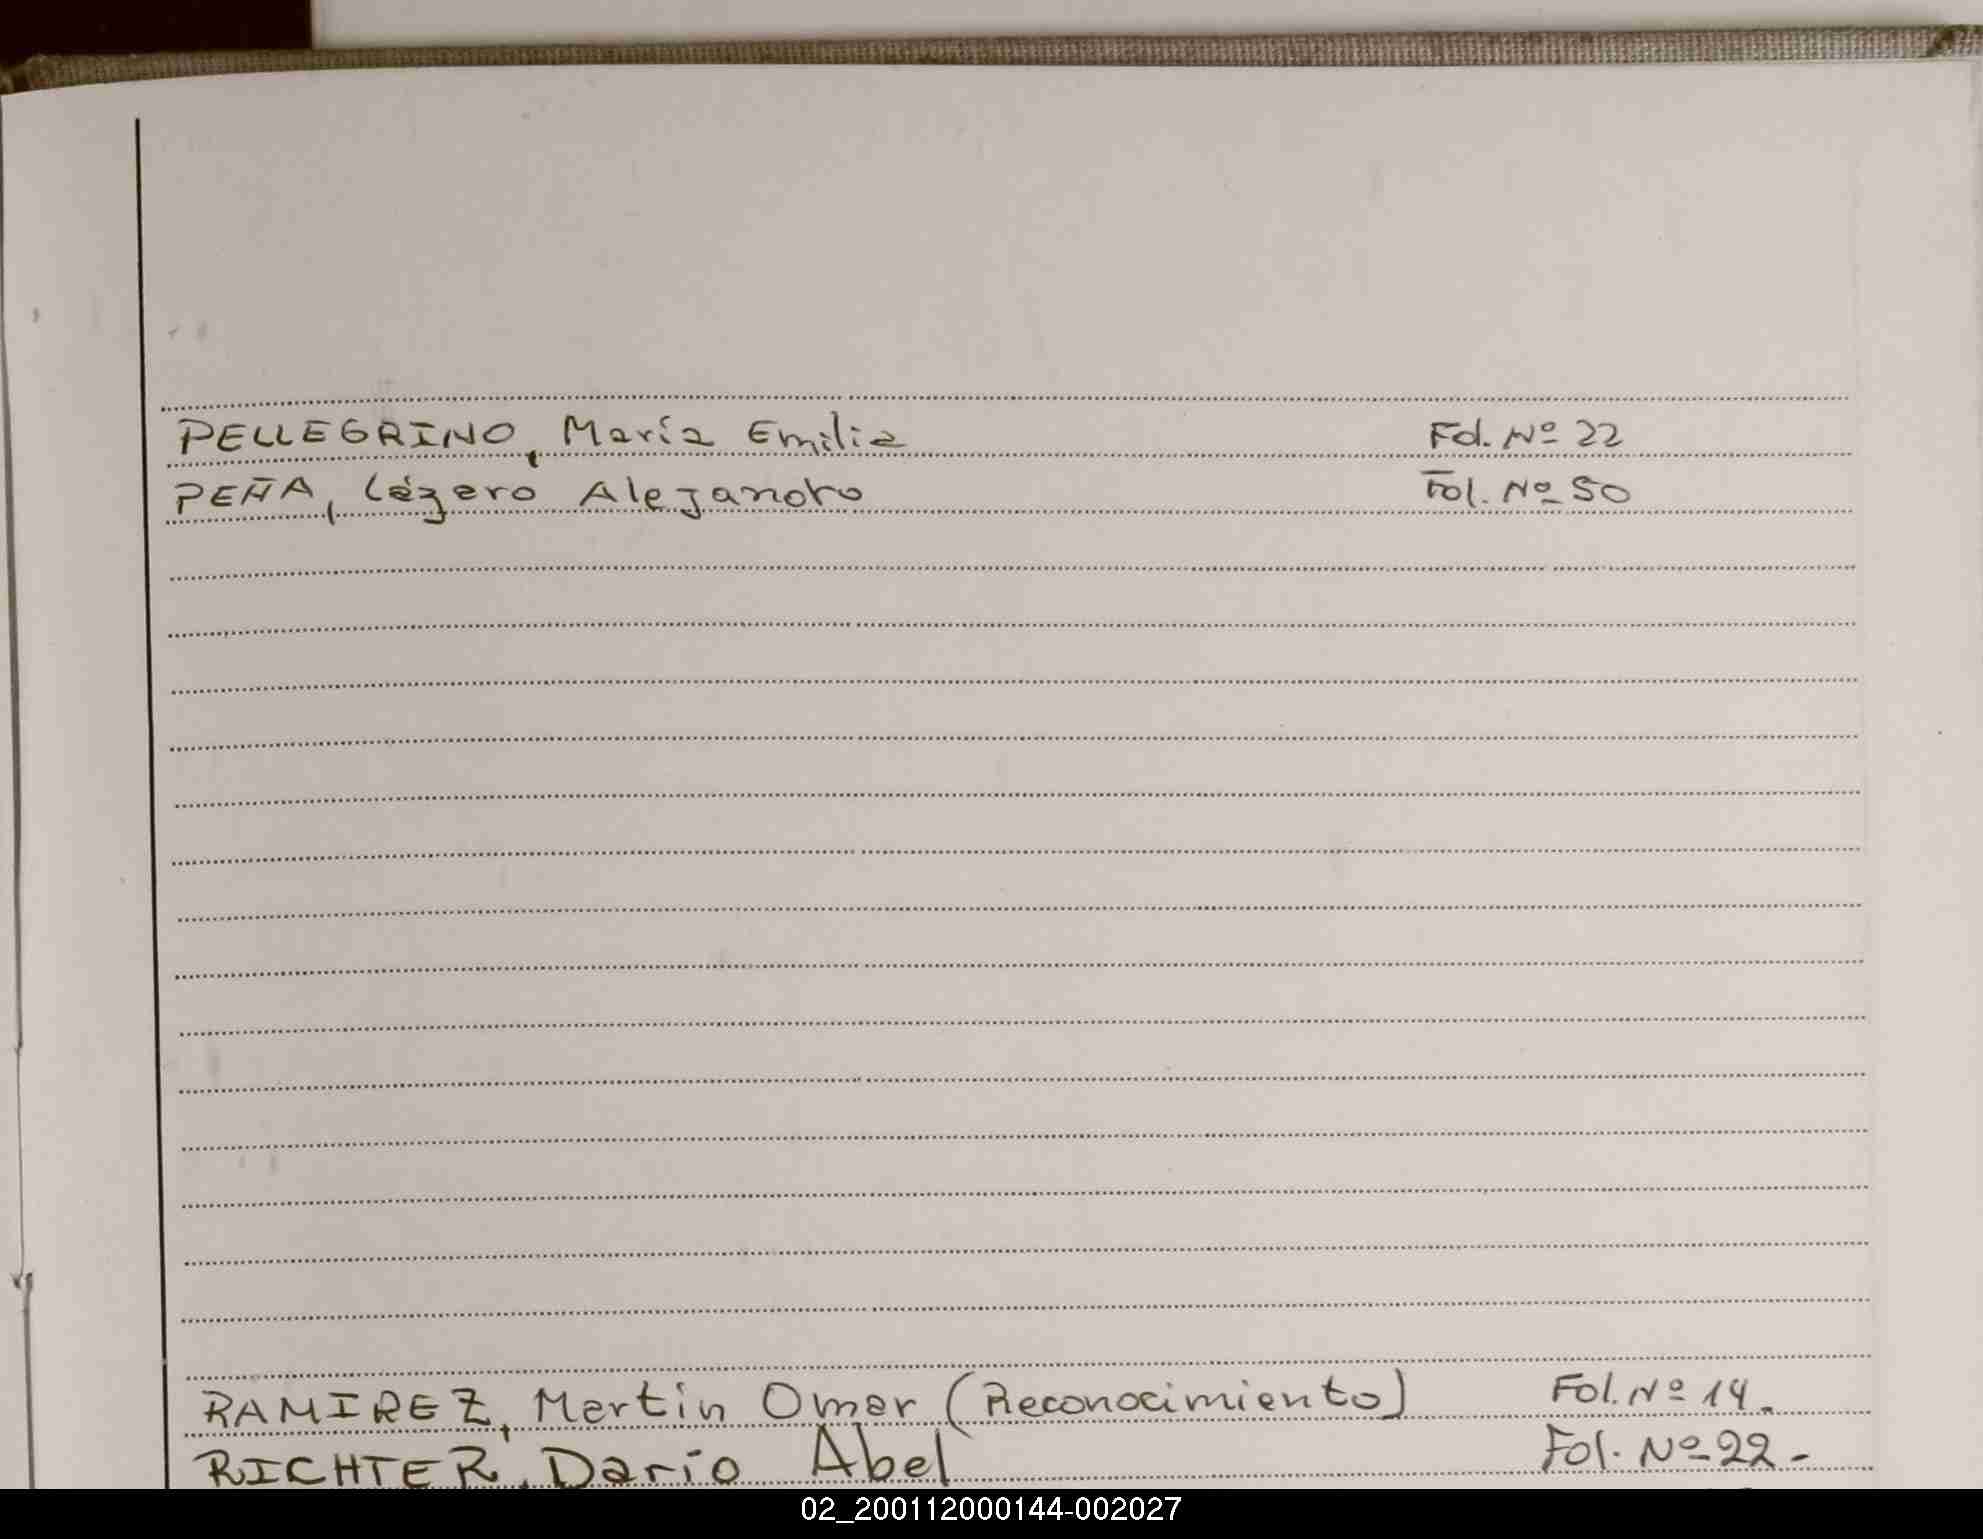 PELLEGRINO, María Emilia Fol. Nº 22
PEÑA, Lázaro Alejandro Fol. Nº 50
RAMIREZ, Martín Omar (Reconocimiento) Fol. Nº 14.
RICHTER, Darío Abel Fol. Nº 22-
02_200112000144-002027